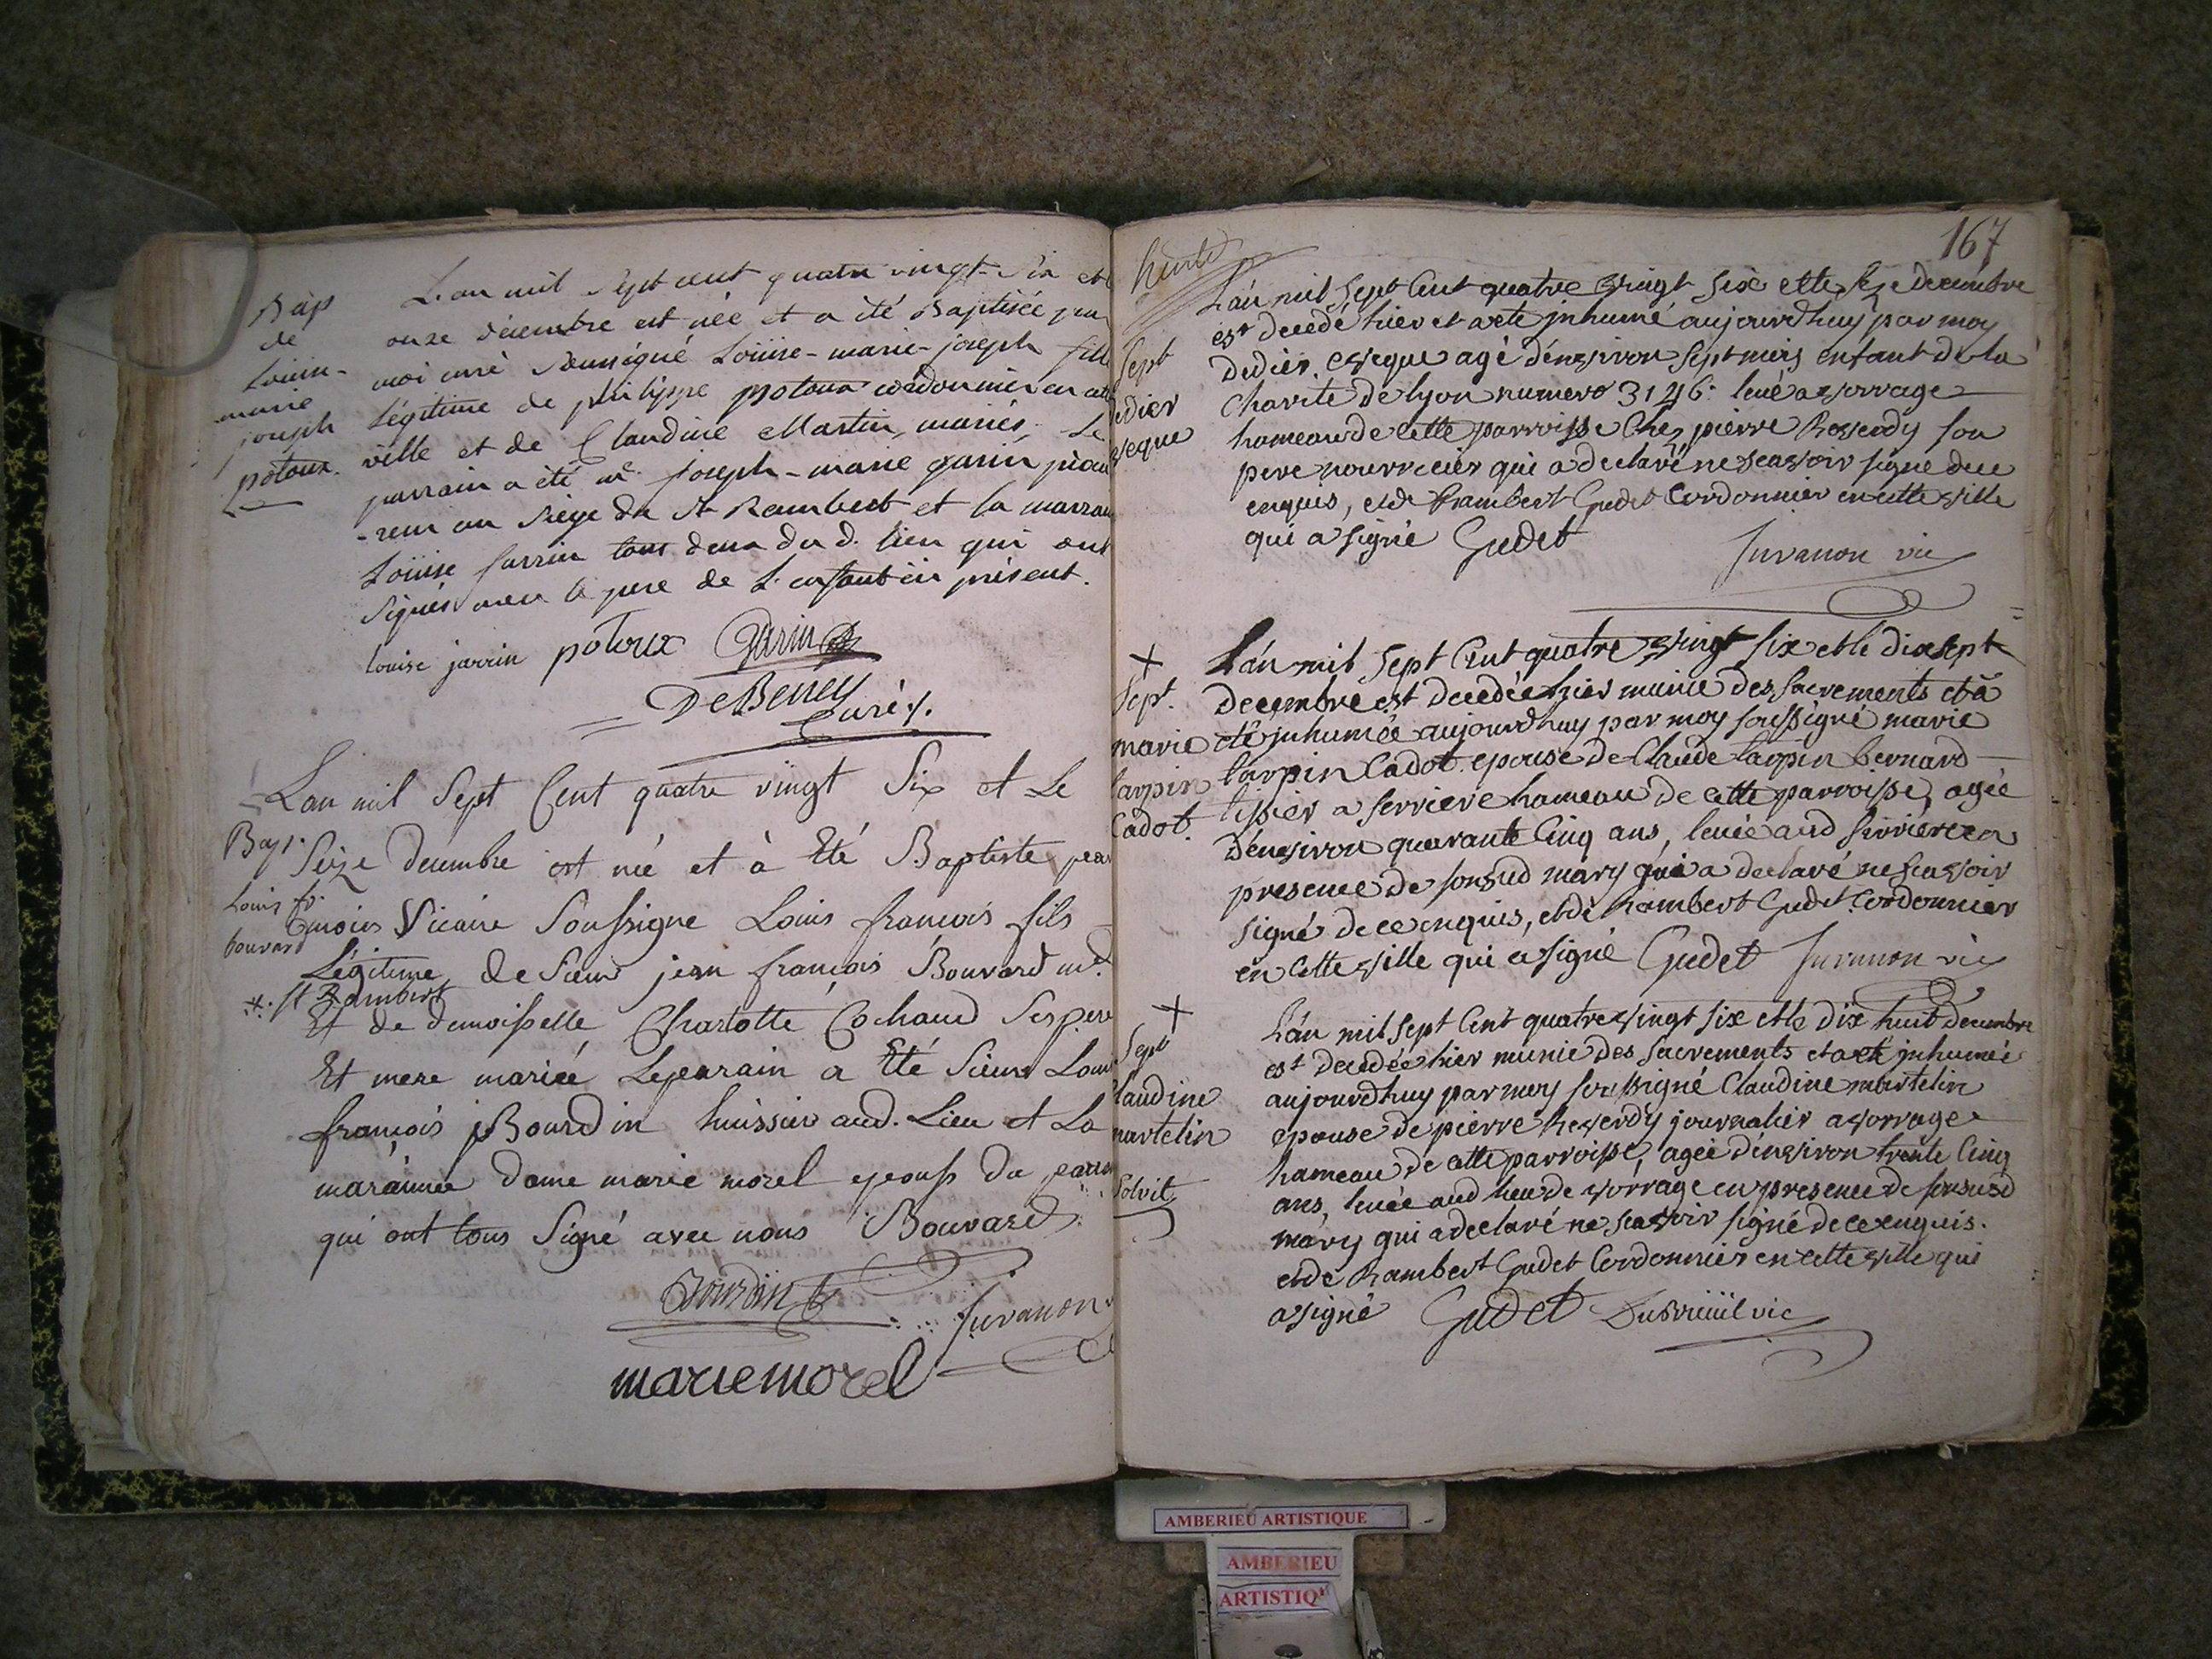 Bap
de
Louise-
marie
joseph
potoux.
L'an mil sept cent quatre vingt-six et le
onze décembre est née et a été Baptisée par
moi curé soussigné Loüise-marie-joseph fille
légitime de philippe potoux cordonnier en cette
ville et de Claudine Martin, mariés, Le
parrain a été mr. joseph-marie garin
-reur au siège de St Rambert et la marraine
Loüise jarrin tous deux du d. lieu qui ont
signés avec le pere de L'enfant ici présent.
louise jarrin potoux Garin
DeBeney
Curé.
Bap.
Louis fr.
bouvard
Lan mil Sept Cent quatre vingt Six et Le
Seize decembre est né et à Eté Baptiste par
moius Vicaire Soussigne Louis francois fils
Légitime de Sieur jean francois Bouvard md.
*. St Rambert
Et de demoisselle Charlotte Cochaud Ses pere
Et mere mariée Leparain a Eté Sieur Louis
francois Bourdin huissier aud. Lieu et La
maráinne dame marie morel epouse du parain
qui ont tous Signé avec nous Bouvard
Bourdin
Juvanon
marie morel
167
Sept
didier
eveque
L'an mil sept Cent quatre vingt six et le seze decembre
est decedé hier et a eté jnhumé aujourdhuy par moy
didier. eveque agé d'environ sept mois enfant de la
Charite de lyon numero 3126. levé a vorrage
hameau de cette parroisse Chez pierre Reverdy son
pere nourricier qui a declaré ne scavoir signe de ce
enquis, et de Rambert Gudet Cordonnier en cette ville
qui a signé Gudet
Juvanon vic
+
Sept.
marie
tarpin
Cadot.
L'an mil sept Cent quatre vingt six et le dix sept
decembre est decedée hier munie des sacrements et a
eté jnhumée aujourdhuy par moy soussigné marie
tarpin Cadot. epouse de Claude tarpin bernard
tissier a serriere hameau de cette parroisse, agée
d'environ quarante Cinq ans, levée aud serriere en
presence de sonsud mary qui a declaré ne scavoir
signé de ce enquis, et de Rambert Gudet. Cordonnier
en cette ville qui a signé Gudet Juvanon vic
+
Sept
Claudine
martelin
Solvit
L'an mil sept Cent quatre vingt six et le dix huit decembre
est decedée hier munie des sacrements et a eté jnhumée
aujourdhuy par moy soussigné Claudine martelin
epouse de pierre Reverdy journalier a vorrage
hameau de cette parroisse, agée d'environ trente Cinq
ans, levée aud lieu de vorrage en presence de sonsusd
mary qui a declaré ne scavoir signé de ce enquis.
et de Rambert Gudet Cordonnier en cette ville qui
a signé Gudet Dubreüil vic
AMBERIEU ARTISTIQUE
AMBERIEU
ARTISTIQ